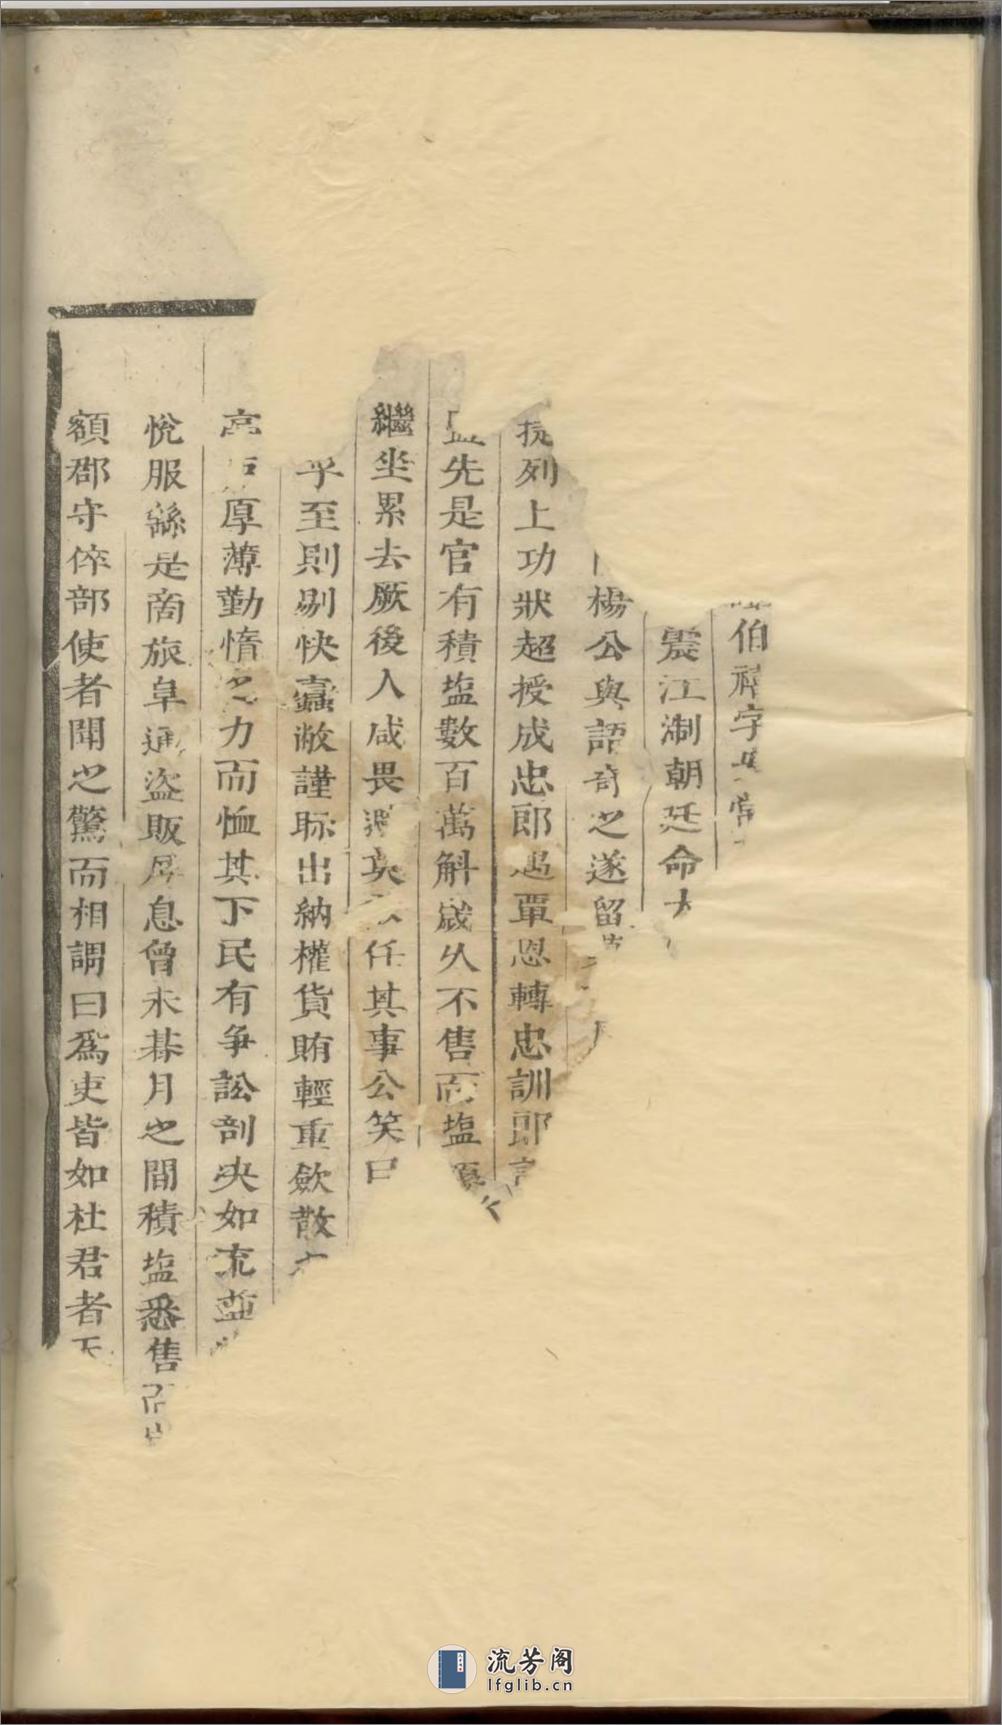 伯禮字
震江淛朝廷命大
楊公與語奇之遂留
捷列上功狀超授成忠郎遇覃恩轉忠訓郎
監先是官有積塩數百萬斛歲久不售而塩
繼坐累去厥後人咸畏避莫任其事公笑曰
乎至則剔抉蠹敝謹眎出納權貨賄輕重斂散
高厚薄勤惰之力而恤其下民有争訟剖決如流
悅服繇是商旅阜通盜販屏息曾未朞月之間積塩悉售
額郡守倅部使者聞之驚而相謂曰爲吏皆如杜君者
流芳阁
lfglib.cn